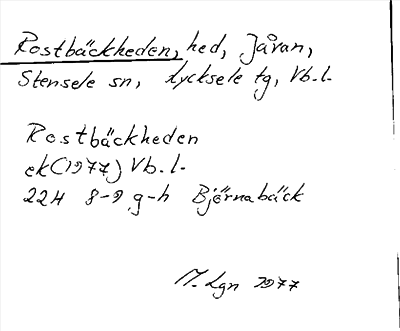 Rostbäckheden, hed, Jåvan,
Stensele sn, Lycksele tg, Vb.l.
Rostbäckheden
ek(1977) Vb.l.
22H 8-9 g-h Björnabäck
M. Lgn 1977